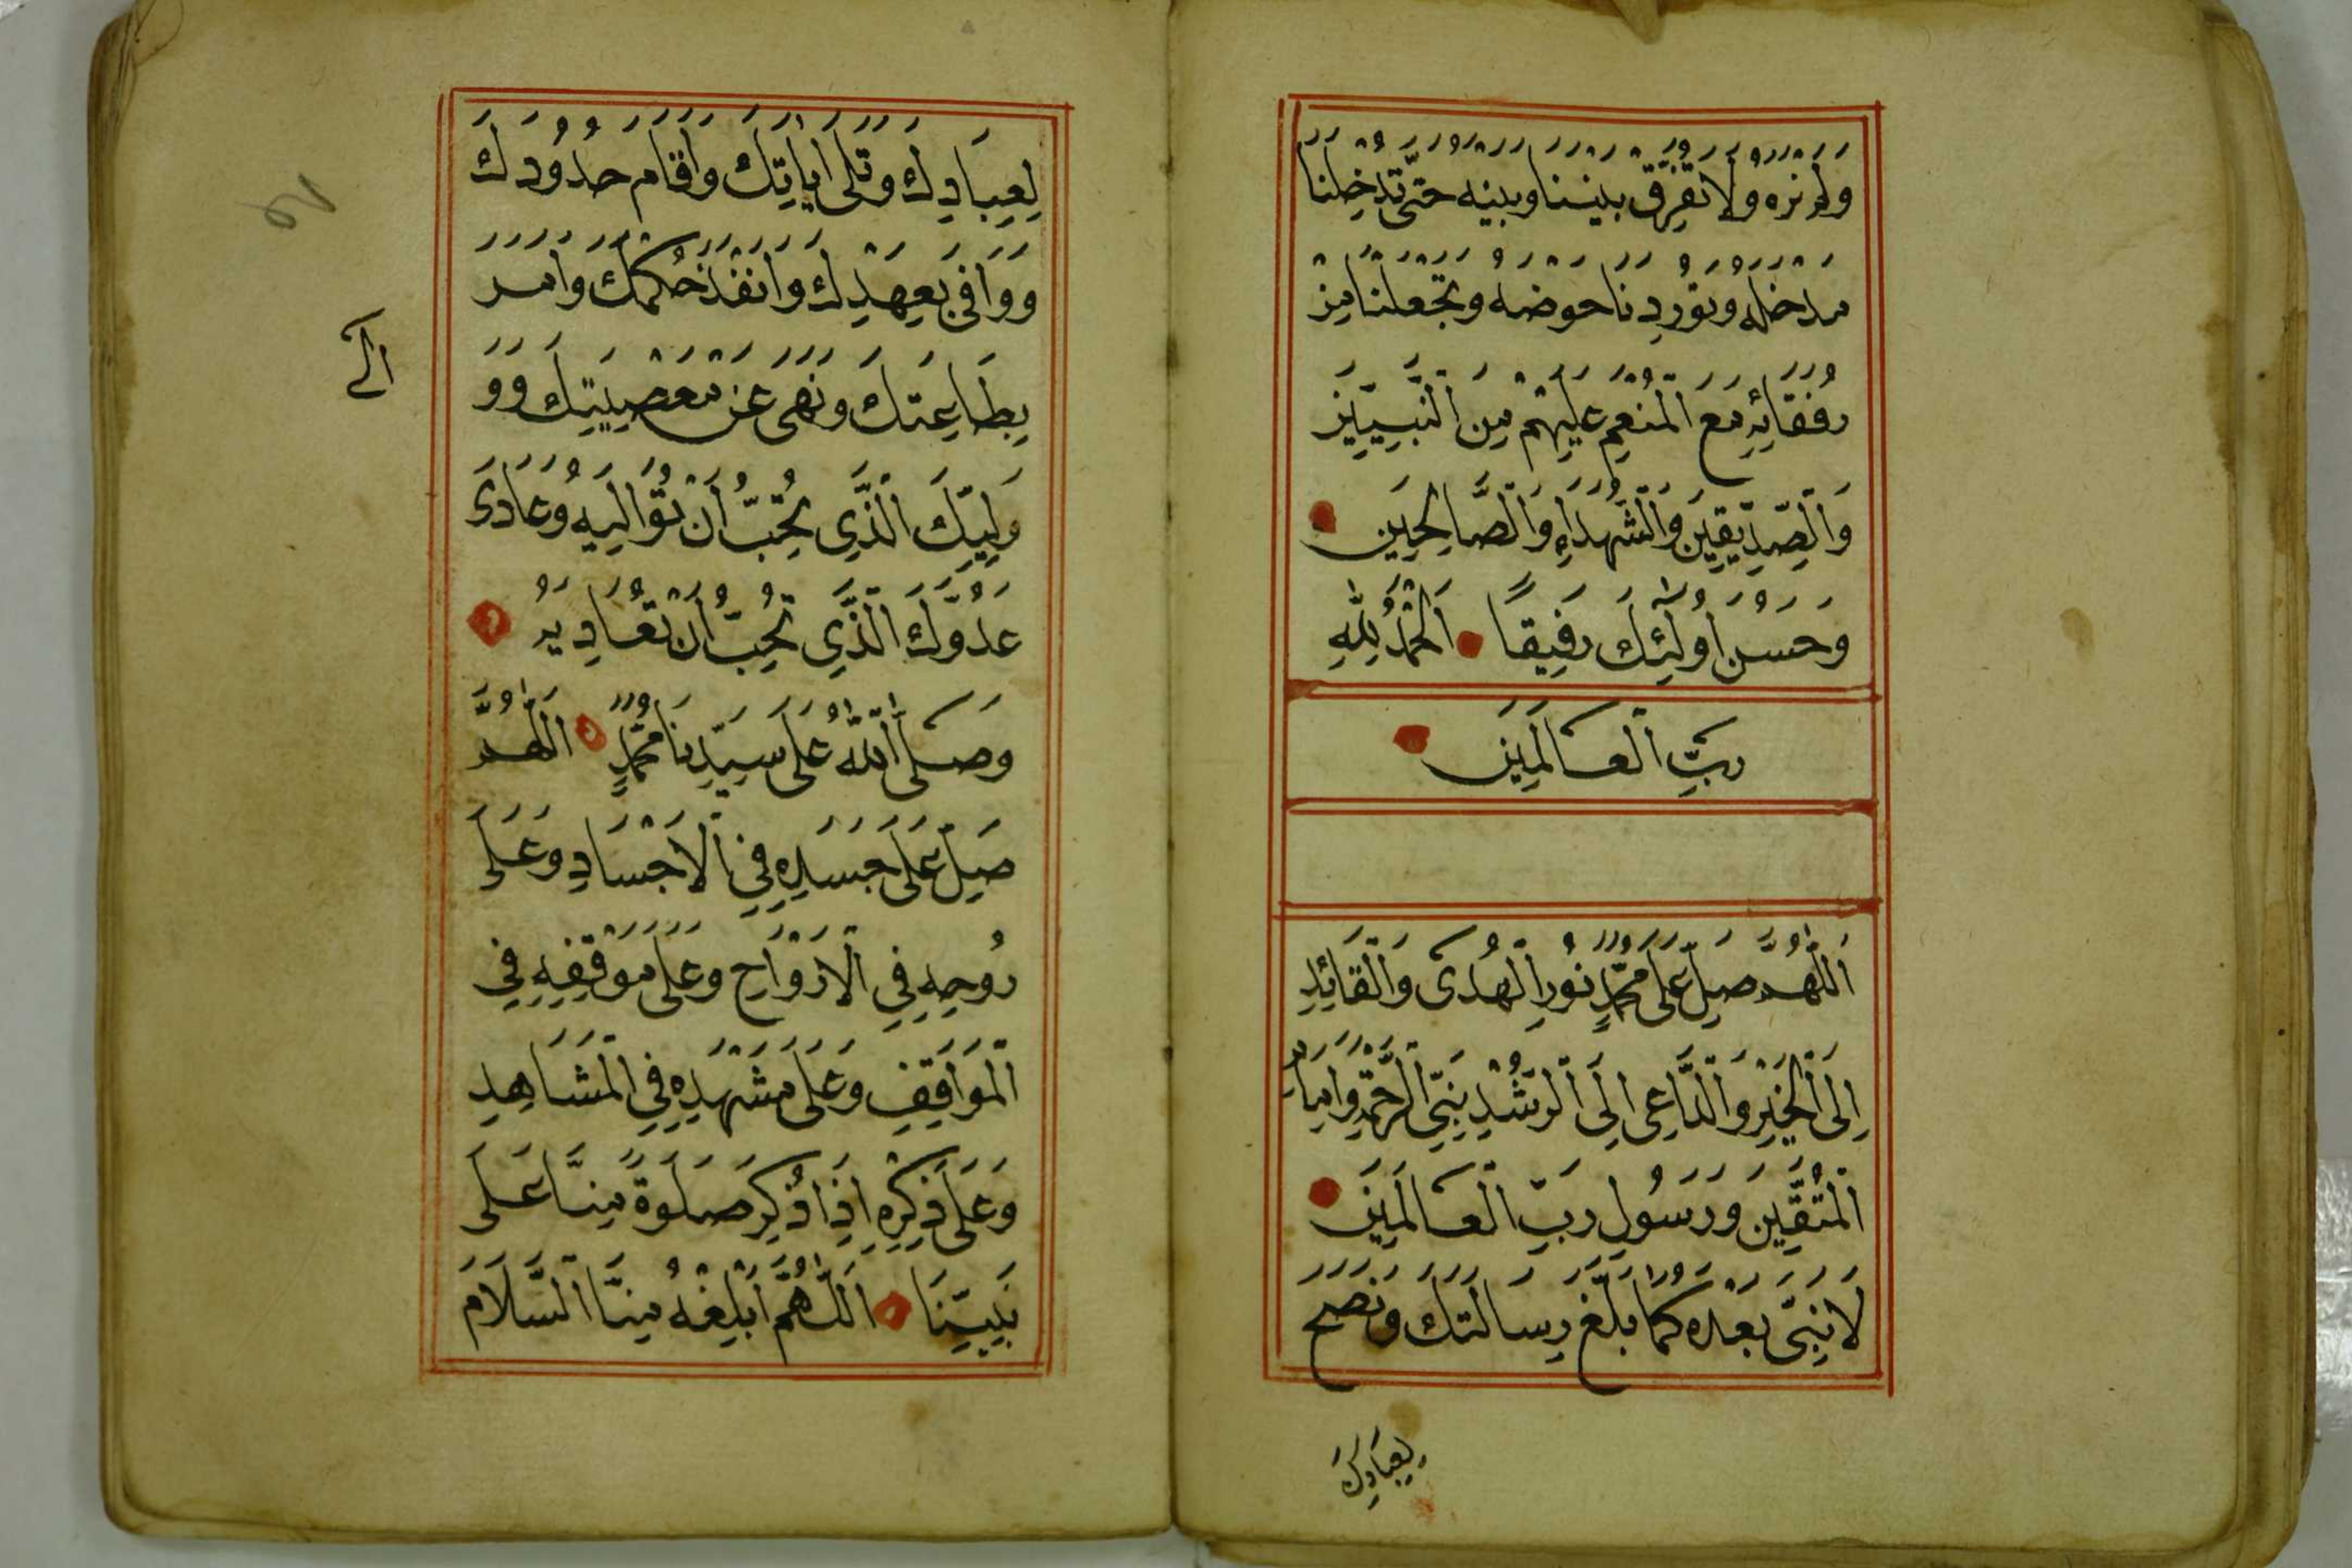 وَلَمْ نَرَهُ وَلَا تُفَرِّقْ بَيْنَنَا وَبَيْنَهُ حَتّٰى تُدْخِلَنَا
مَدْخَلَهُ وَتُوْرِدَنَا حَوْضَهُ وَتَجْعَلَنَا مِنْ
رُفَقَائِهِ مَعَ الْمُنْعَمِ عَلَيْهِمْ مِنَ النَّبِيِّيْنَ
وَالصِّدِّيْقِيْنَ وَالشُّهَدَاءِ وَالصَّالِحِيْنَ
وَحَسُنَ اُولٰئِكَ رَفِيْقًا اَلْحَمْدُ لِلّٰهِ
رَبِّ الْعَالَمِيْنَ
اَللّٰهُمَّ صَلِّ عَلَى مُحَمَّدٍ نُوْرِ الْهُدَى وَالْقَائِدِ
اِلَى الْخَيْرِ وَالدَّاعِى اِلَى الرُّشْدِ نَبِىِّ الرَّحْمَةِ وَاِمَامِ
الْمُتَّقِيْنَ وَرَسُوْلِ رَبِّ الْعَالَمِيْنَ
لَا نَبِىَّ بَعْدَهُ كَمَا بَلَّغَ رِسَالَتَكَ وَنَصَحَ
لِعِبَادِكَ
لِعِبَادِكَ وَتَلَى اٰيَاتِكَ وَاَقَامَ حُدُوْدَكَ
وَوَافَى بِعَهْدِكَ وَاَنْفَذَ حُكْمَكَ وَاَمَرَ
بِطَاعَتِكَ وَنَهَى عَنْ مَعْصِيَتِكَ وَوَ
اَلٰى
وَلِيَّكَ الَّذِى تُحِبُّ اَنْ تُوَالِيَهُ وَعَادَى
عَدُوَّكَ الَّذِى تُحِبُّ اَنْ تُعَادِيَهُ
وَصَلَّى اللّٰهُ عَلَى سَيِّدِنَا مُحَمَّدٍ اَللّٰهُمَّ
صَلِّ عَلَى جَسَدِهِ فِى الْاَجْسَادِ وَعَلَى
رُوْحِهِ فِى الْاَرْوَاحِ وَعَلَى مَوْقِفِهِ فِى
الْمَوَاقِفِ وَعَلَى مَشْهَدِهِ فِى الْمَشَاهِدِ
وَعَلَى ذِكْرِهِ اِذَا ذُكِرَ صَلٰوةً مِنَّا عَلَى
نَبِيِّنَا اَللّٰهُمَّ اَبْلِغْهُ مِنَّا السَّلَامَ